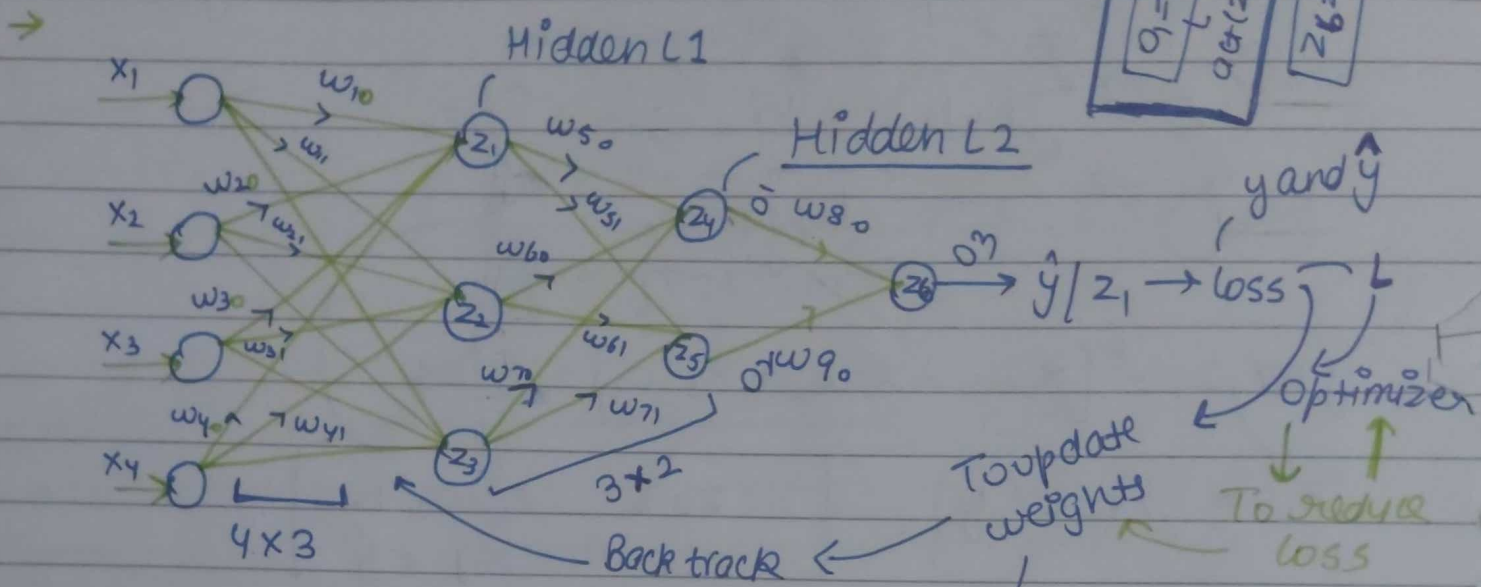 →
Hidden L1
x1
w10
w11
z1
w50
w51
Hidden L2
y and ŷ
x2
w20
w21
z4
w80
w60
z2
z6
ŷ/z1 → loss
L
x3
w30
w31
w61
z5
w90
Optimizer
w70
w71
x4
w40
w41
z3
3×2
To update
weights
To reduce
loss
4×3
Back track